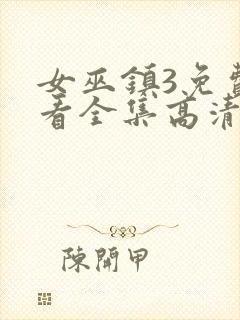 女巫鎮3免費
看全集高清
陳開甲